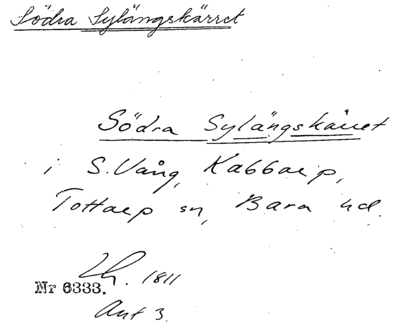 Södra Sylängskärret
Södra Sylängskärret
i S. Vång, Kabbarp,
Tottarp sn, Bara hd.
Lh. 1811
Nr 6333.
Akt 3.